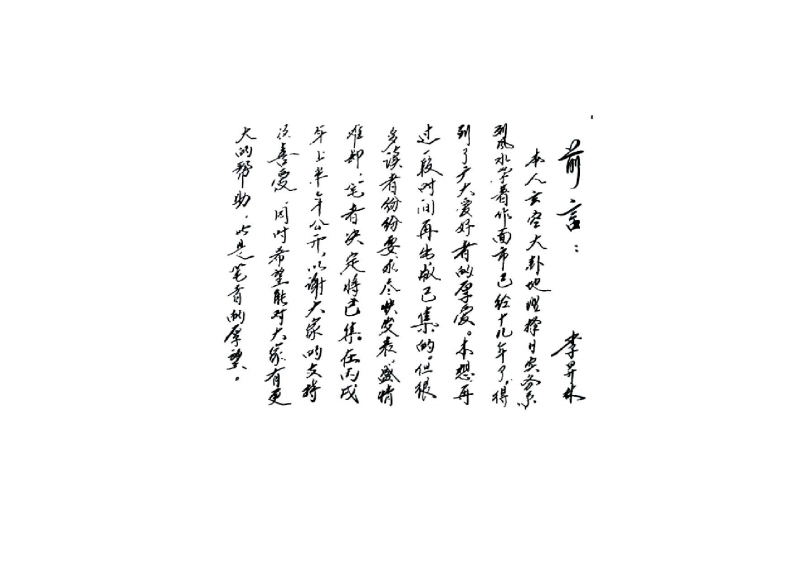 前言： 李昇林
本人玄空大卦地理择日实务系
列风水学著作面市已经十几年了。得
到了广大爱好者的厚爱。本想再
过一段时间再出成己集的。但很
多读者份份要求尽快发表，盛情
难却，笔者决定将己集。在丙戌
年上半年公开，以谢大家的支持
 喜爱，同时希望能对大家有更
大的帮助，此是笔者的厚望。